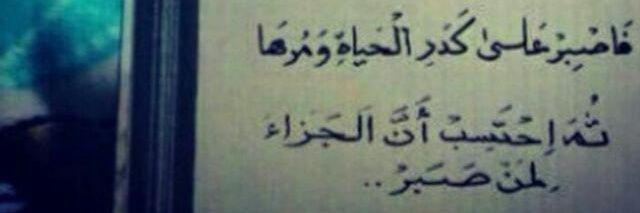 فَاصْبِرْ عَلىٰ كَدَرِ الْحَيَاةِ وَمُرِهَا
ثُمَ اِحْتَسِبْ أَنَّ الَجَزَاءَ
لِمَنْ صَبَرْ ..